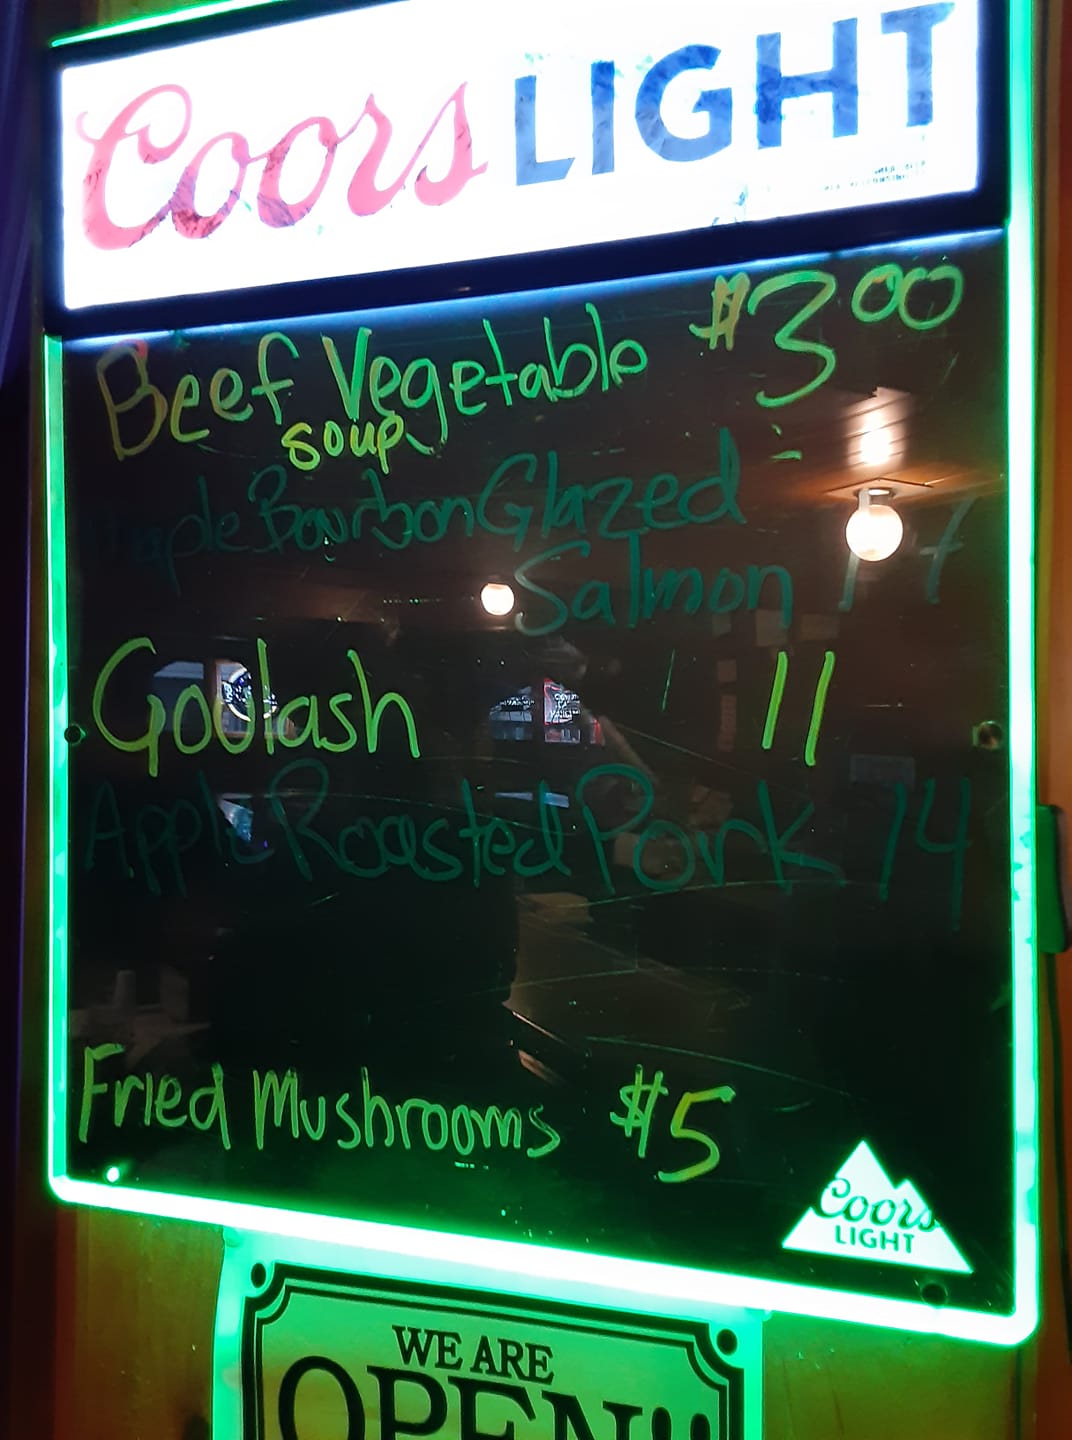 Coors LIGHT
Beef Vegetable $3.00
soup
Maple Bourbon Glazed
Salmon 14
Goulash 11
Apple Roasted Pork 14
Fried Mushrooms $5
Coors
LIGHT
WE ARE
OPEN!!